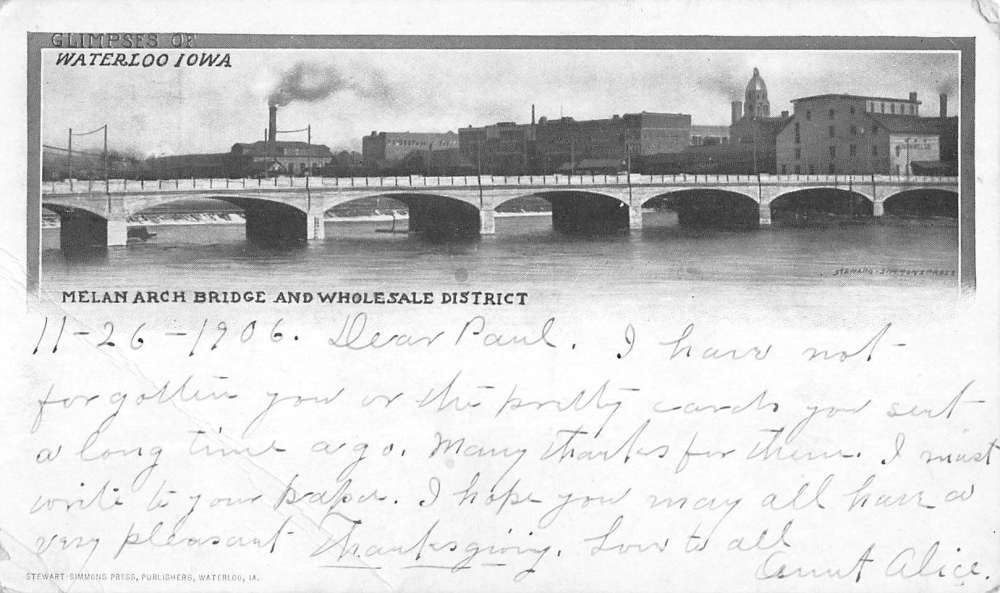 GLIMPSES OF
WATERLOO IOWA
STEWART-SIMMONS PRESS
MELAN ARCH BRIDGE AND WHOLESALE DISTRICT
11-26-1906. Dear Paul. I have not
forgotten you or the pretty cards you sent
a long time ago. Many thanks for them. I must
write to your papa. I hope you may all have a
very pleasant Thanksgiving. Love to all
Aunt Alice.
STEWART-SIMMONS PRESS, PUBLISHERS, WATERLOO, IA.